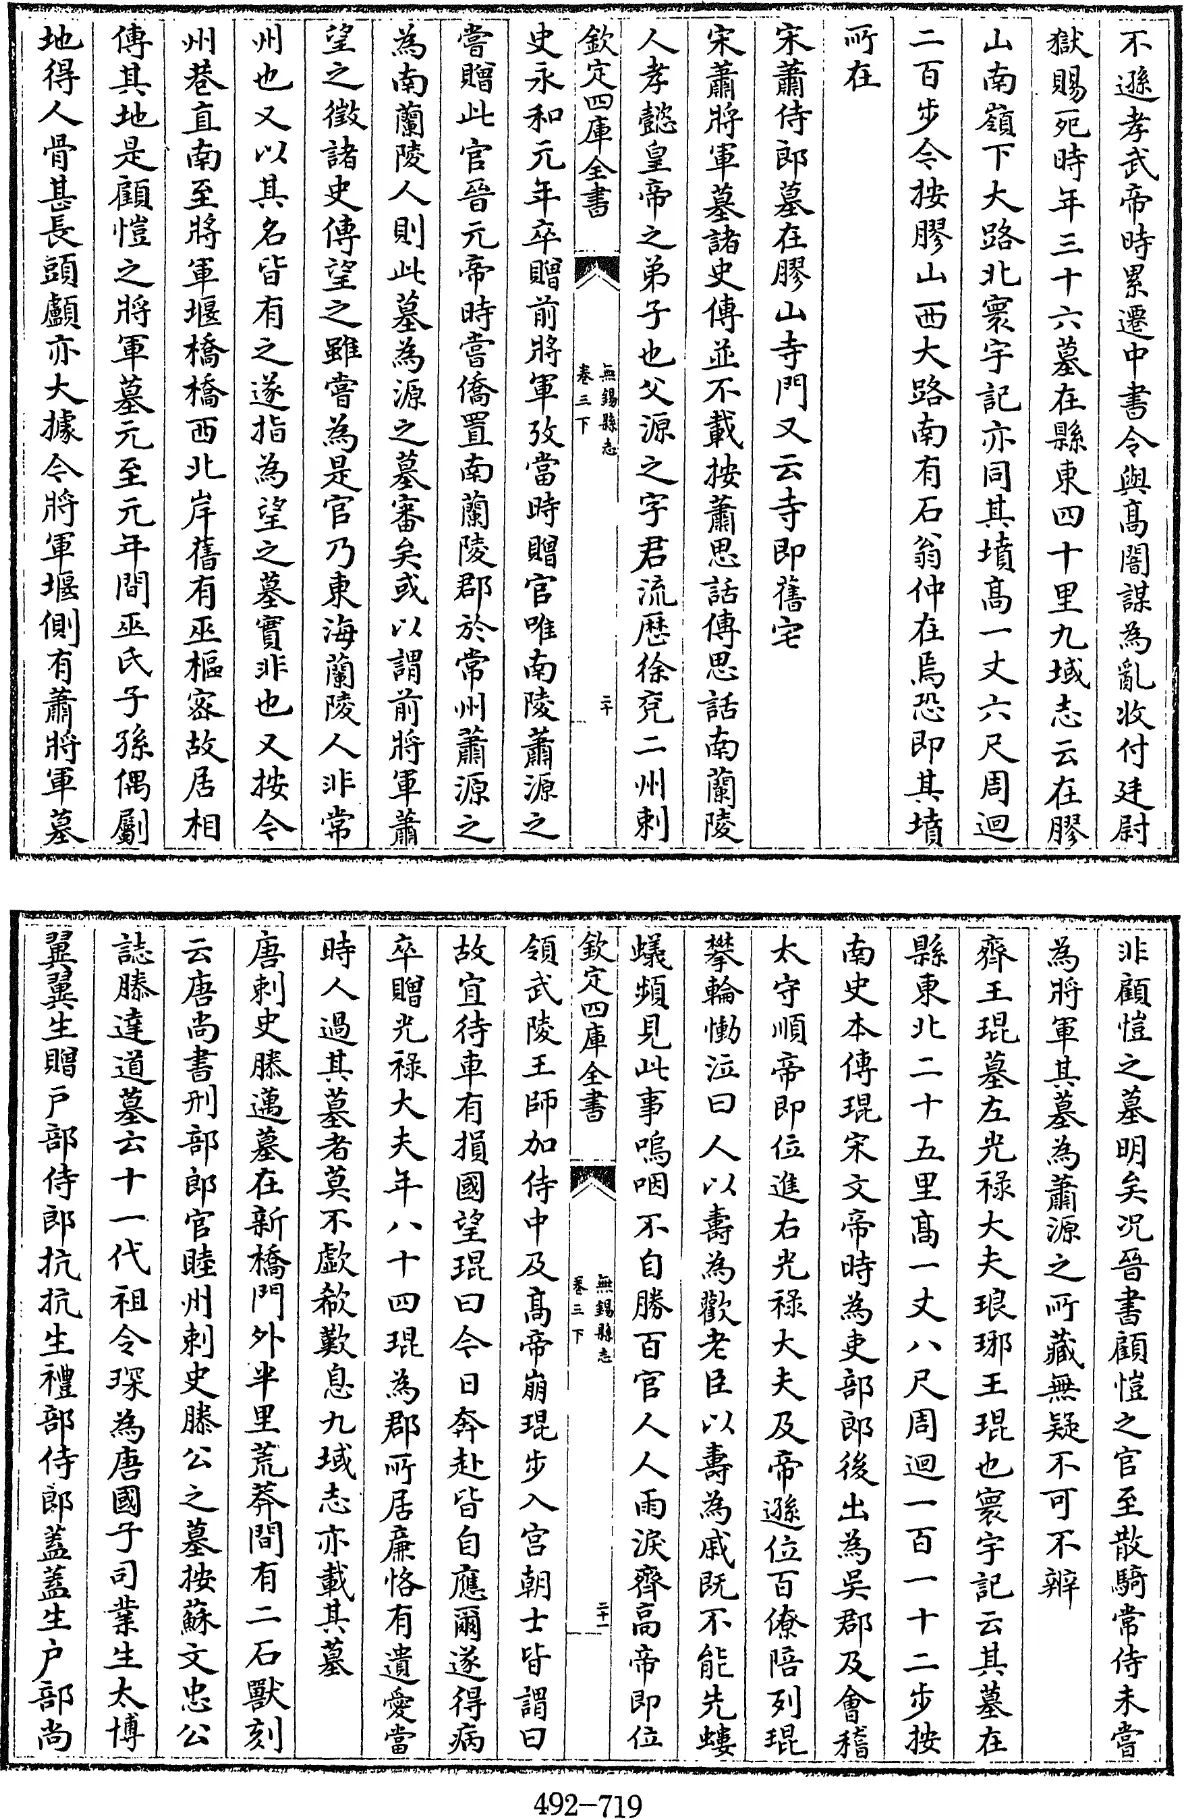 不遜孝武帝時累遷中書令與高闍謀為亂收付廷尉
獄賜死時年三十六墓在縣東四十里九域志云在膠
山南嶺下大路北寰宇記亦同其墳高一丈六尺周迴
二百步今按膠山西大路南有石翁仲在焉恐即其墳
所在
宋蕭侍郎墓在膠山寺門又云寺即舊宅
宋蕭將軍墓諸史傳並不載按蕭思話傳思話南蘭陵
人孝懿皇帝之弟子也父源之字君流歴徐兖二州刺
欽定四庫全書
無錫縣志
卷三下
二十
史永和元年卒贈前將軍攷當時贈官唯南陵蕭源之
嘗贈此官晉元帝時嘗僑置南蘭陵郡於常州蕭源之
為南蘭陵人則此墓為源之墓審矣或以謂前將軍蕭
望之徴諸史傳望之雖嘗為是官乃東海蘭陵人非常
州也又以其名皆有之遂指為望之墓實非也又按今
州巷直南至將軍堰橋橋西北岸舊有巫樞宻故居相
傳其地是顧愷之將軍墓元至元年間巫氏子孫偶劚
地得人骨甚長頭顱亦大據今將軍堰側有蕭將軍墓
非顧愷之墓明矣况晉書顧愷之官至散騎常侍未嘗
為將軍其墓為蕭源之所藏無疑不可不辨
齊王琨墓左光禄大夫琅琊王琨也寰宇記云其墓在
縣東北二十五里高一丈八尺周迴一百一十二步按
南史本傳琨宋文帝時為吏部郎後出為吳郡及會稽
太守順帝即位進右光禄大夫及帝遜位百僚陪列琨
攀輪慟泣曰人以壽為歡老臣以壽為戚既不能先螻
蟻頻見此事嗚咽不自勝百官人人雨淚齊高帝即位
欽定四庫全書
無錫縣志
卷三下
二十一
領武陵王師加侍中及高帝崩琨步入宫朝士皆謂曰
故宜待車有損國望琨曰今日奔赴皆自應爾遂得病
卒贈光禄大夫年八十四琨為郡所居廉恪有遺愛當
時人過其墓者莫不歔欷歎息九域志亦載其墓
唐刺史滕邁墓在新橋門外半里荒莽間有二石獸刻
云唐尚書刑部郎官睦州刺史滕公之墓按蘇文忠公
誌滕達道墓云十一代祖令琛為唐國子司業生太博
翼翼生贈戸部侍郎抗抗生禮部侍郎蓋蓋生户部尚
492-719